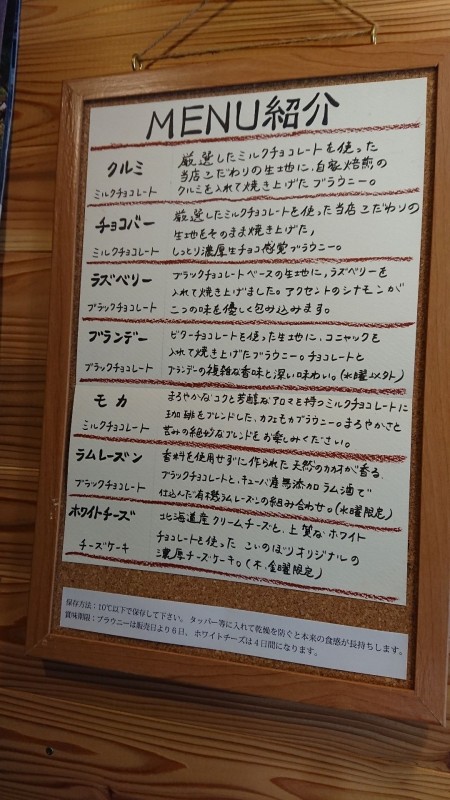 MENU紹介
クルミ
ミルクチョコレート
厳選したミルクチョコレートを使った
当店こだわりの生地に、自家焙煎の
クルミを入れて焼き上げたブラウニー。
チョコバー
ミルクチョコレート
厳選したミルクチョコレートを使った当店こだわりの
生地をそのまま焼き上げた、
しっとり濃厚生チョコ感覚ブラウニー。
ラズベリー
ブラックチョコレート
ブラックチョコレートベースの生地に、ラズベリーを
入れて焼き上げました。アクセントのシナモンが
二つの味を優しく包み込みます。
ブランデー
ブラックチョコレート
ビターチョコレートを使った生地に、コニャックを
入れて焼き上げたブラウニー。チョコレートと
ブランデーの複雑な香味と深い味わい。(水曜以外)
モカ
ミルクチョコレート
まろやかなコクと芳醇なアロマを持つミルクチョコレートに
珈琲をブレンドした、カフェモカブラウニー。まろやかさと
苦みの絶妙なブレンドをお楽しみください。
ラムレーズン
ブラックチョコレート
香料を使用せずに作られた天然のカカオが香る、
ブラックチョコレートと、キューバ産無添加ラム酒で
仕込んだ有機ラムレーズンの組み合わせ。(水曜限定)
ホワイトチーズ
チーズケーキ
北海道産クリームチーズと、上質なホワイト
チョコレートを使った こいのぼりオリジナルの
濃厚チーズケーキ。(木、金曜限定)
保存方法:10℃以下で保存して下さい。タッパー等に入れて乾燥を防ぐと本来の食感が長持ちします。
賞味期限:ブラウニーは販売日より6日、ホワイトチーズは4日間になります。